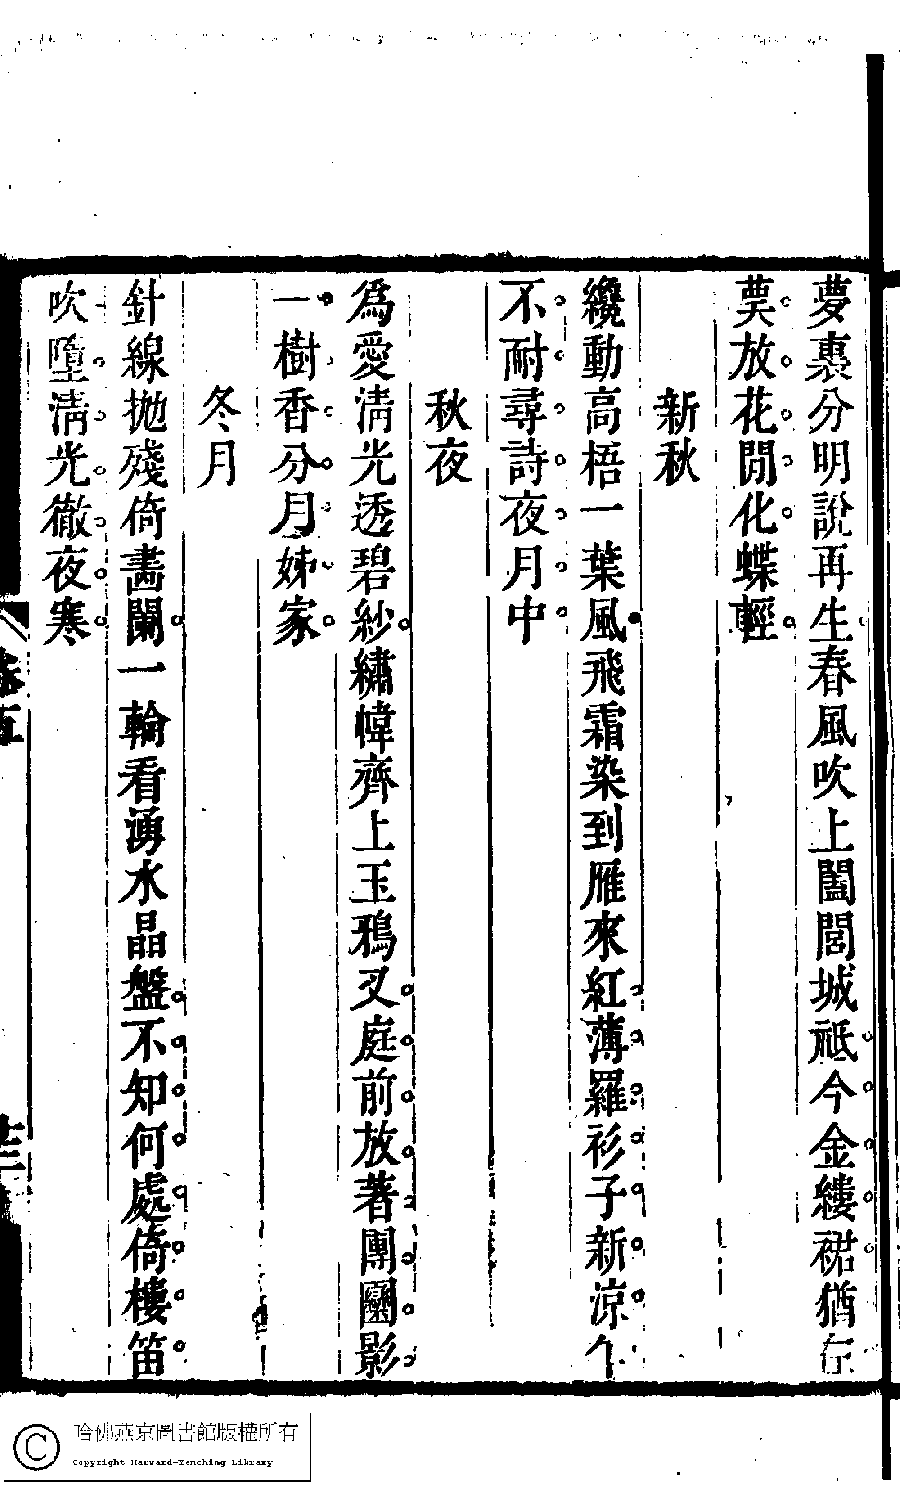 夢裏分明說再生春風吹上闔閭城祗今金縷裙猶在
莫放花閒化蝶輕
新秋
纔動高梧一葉風飛霜染到雁來紅薄羅衫子新涼乍
不耐尋詩夜月中
秋夜
爲愛清光透碧紗繡幃齊上玉鴉叉庭前放著團圞影
一樹香分月姊家
冬月
針線拋殘倚畫闌一輪看湧水晶盤不知何處倚樓笛
吹墮清光徹夜寒
卷五
哈佛燕京圖書館版權所有
Copyright Harvard-Yenching Library